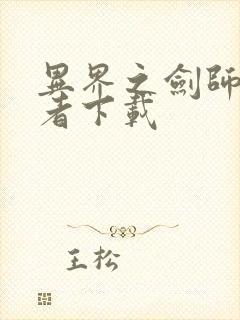 異界之劍師
者下載
王松